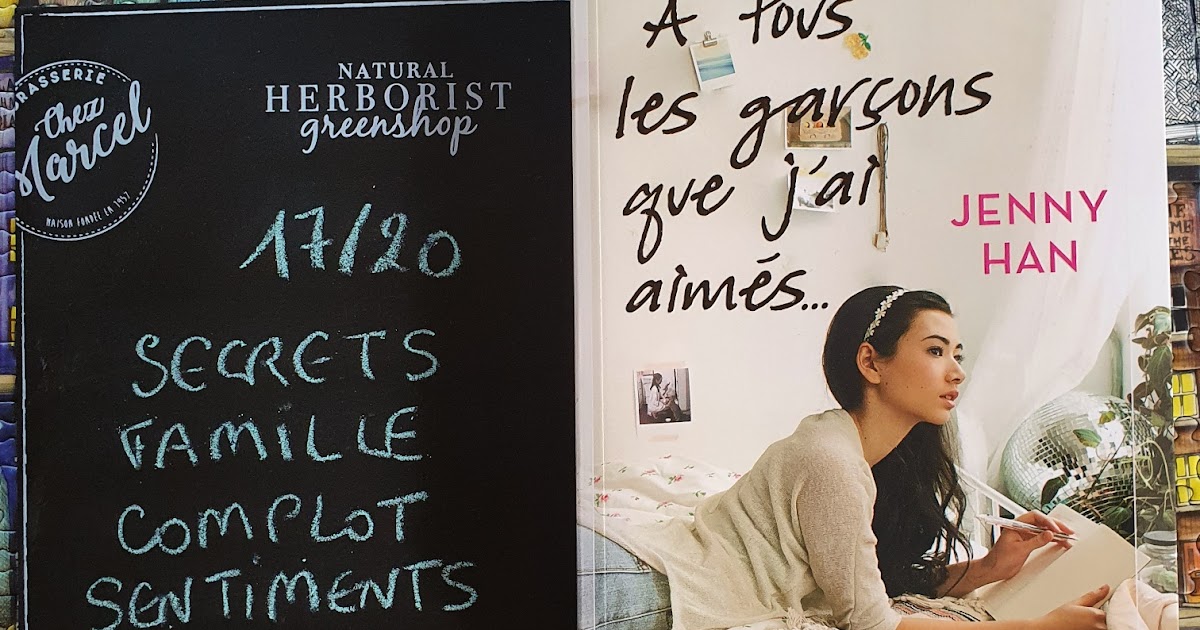 BRASSERIE
Chez
Marcel
MAISON FONDÉE EN 1957
NATURAL
HERBORIST
greenshop
17/20
SECRETS
FAMILLE
COMPLOT
SENTIMENTS
À tous
les garçons
que j'ai
aimés...
JENNY
HAN